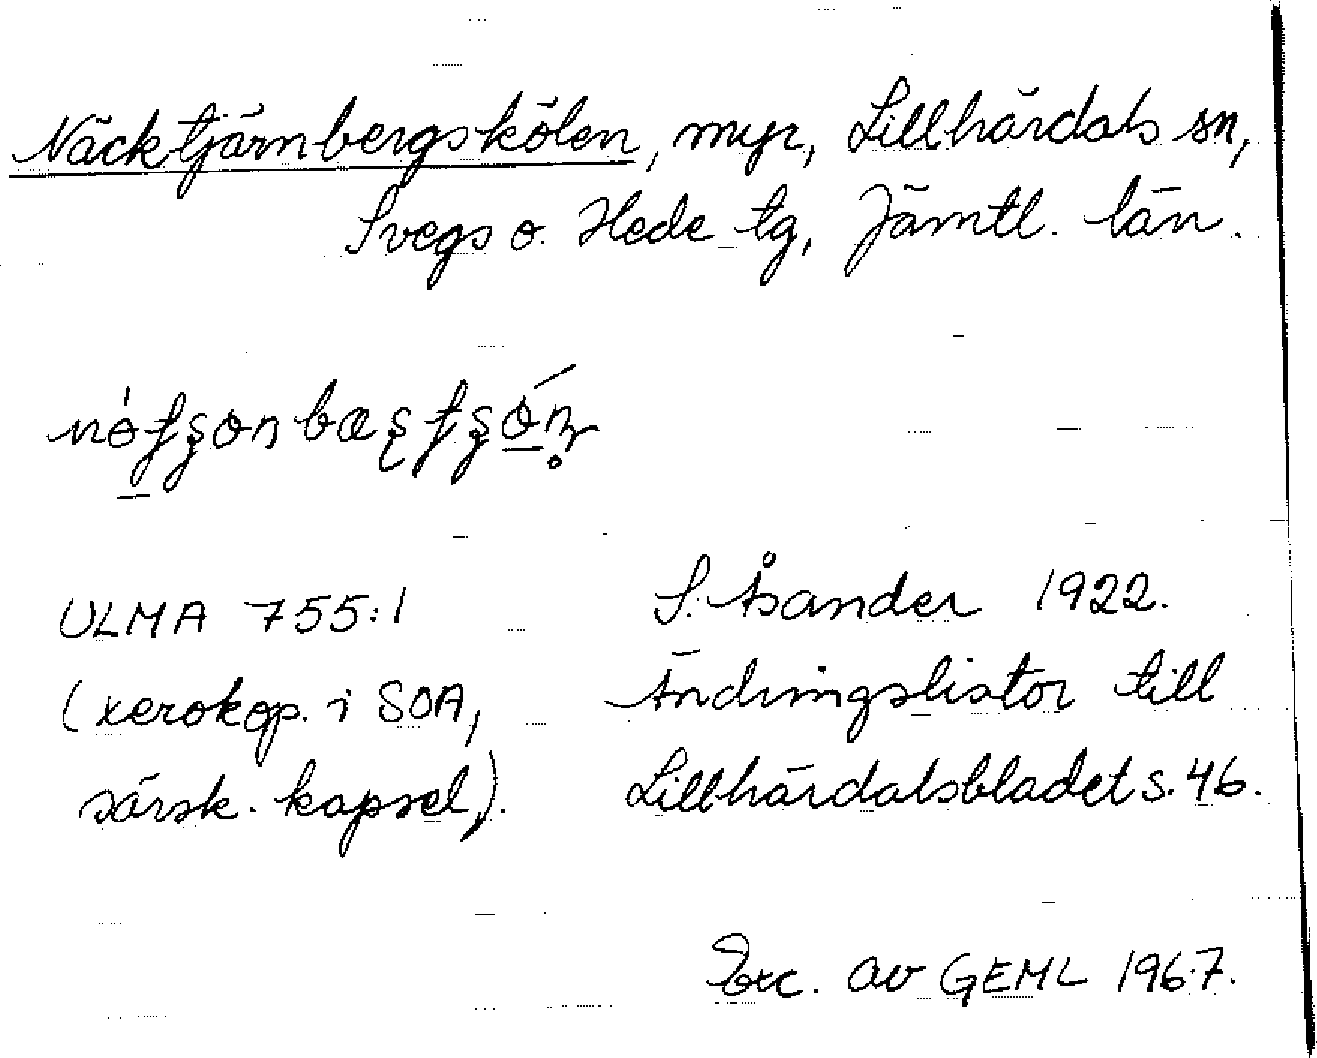 Näcktjärnbergskölen, myr, Lillhärdals sn,
Svegs o. Hede tg, Jämtl. län.
ULMA 755:1 S. Åsander 1922.
(xerokop. i SOA, Ändringslistor till
särsk. kapsel). Lillhärdalsbladet s. 46.
Exc. av GEML 1967.